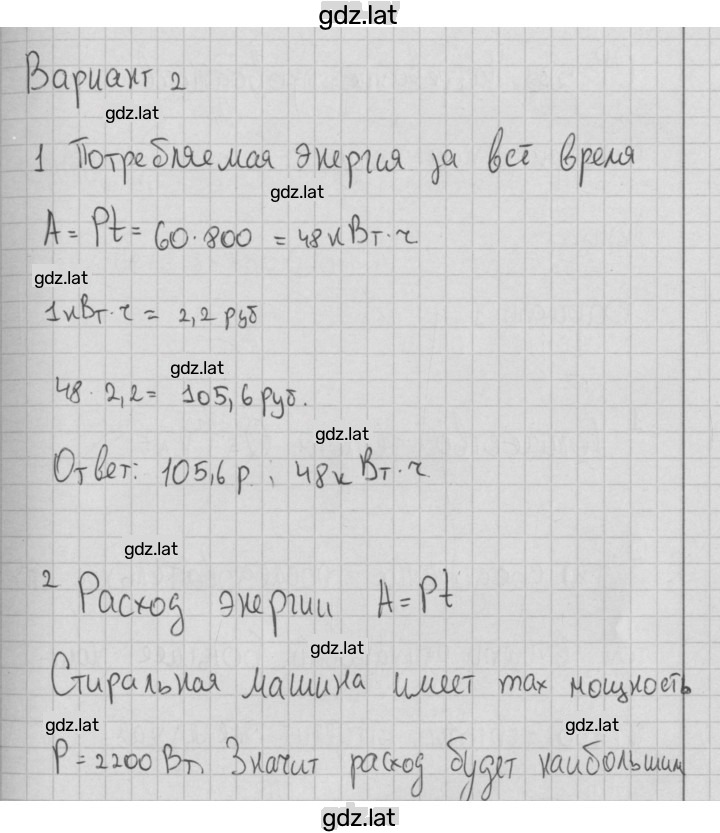 gdz.lat
Вариант 2
gdz.lat
1 Потребляемая энергия за всё время
gdz.lat
A = Pt = 60·800 = 48 кВт·ч
gdz.lat
1 кВт·ч = 2,2 руб
gdz.lat
48·2,2 = 105,6 руб.
gdz.lat
Ответ: 105,6 р, 48 кВт·ч
gdz.lat
2 Расход энергии A = Pt
gdz.lat
Стиральная машина имеет max мощность
gdz.lat gdz.lat
P = 2200 Вт, Значит расход будет наибольшим
gdz.lat